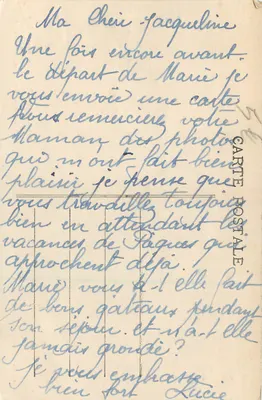 Ma Chère Jacqueline
Une fois encore avant
le départ de Marie je
vous envoie une carte
Vous remercierez votre
Maman des photos
qui m'ont fait bien
plaisir, je pense que
vous travaillez toujours
bien en attendant les
vacances de Pâques qui
approchent déjà.
Marie vous a-t-elle fait
de bons gateaux pendant
son séjour et n'a-t-elle
jamais grondé?
je vous embrasse
bien fort Lucie
CARTE POSTALE